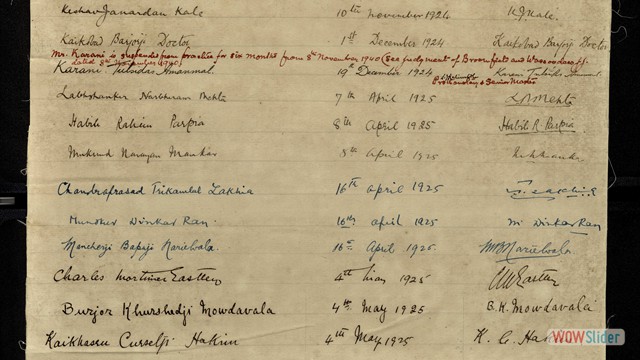 Keshav Janardan Kale 10th November 1924 K J Kale.
Kaikobad Barjorji Doctor 1st December 1924 Kaikobad Barjorji Doctor
Mr. Karani is suspended from practice for six months from 8th November 1940 (See judgment of Broomfield and Wassoodew JJ.
dated 8th November 1940)
Karani Tulsidas 19th December 1924 Karani Tulsidas
Prothonotary & Senior Master
Labhshanker Harbhuram Mehta 7th April 1925 Mehta
Habib Rahim Parpia 8th April 1925 Habib R. Parpia
Mukund Narayan 8th April 1925
Chandraprasad Trikamlal Lakhia 16th April 1925
Manoher Dinkar Rao 16th April 1925 M Dinkar Rao
Mancherji Bapuji Narielwala 16th April 1925 MB Narielwala
Charles Mortimer Eastley 4th May 1925 CM Eastley
Burjor Khurshedji Mowdavala 4th May 1925 B. K. Mowdavala
Kaikhasru Cursetji Hakim 4th May 1925 K. C.
WOWSlider